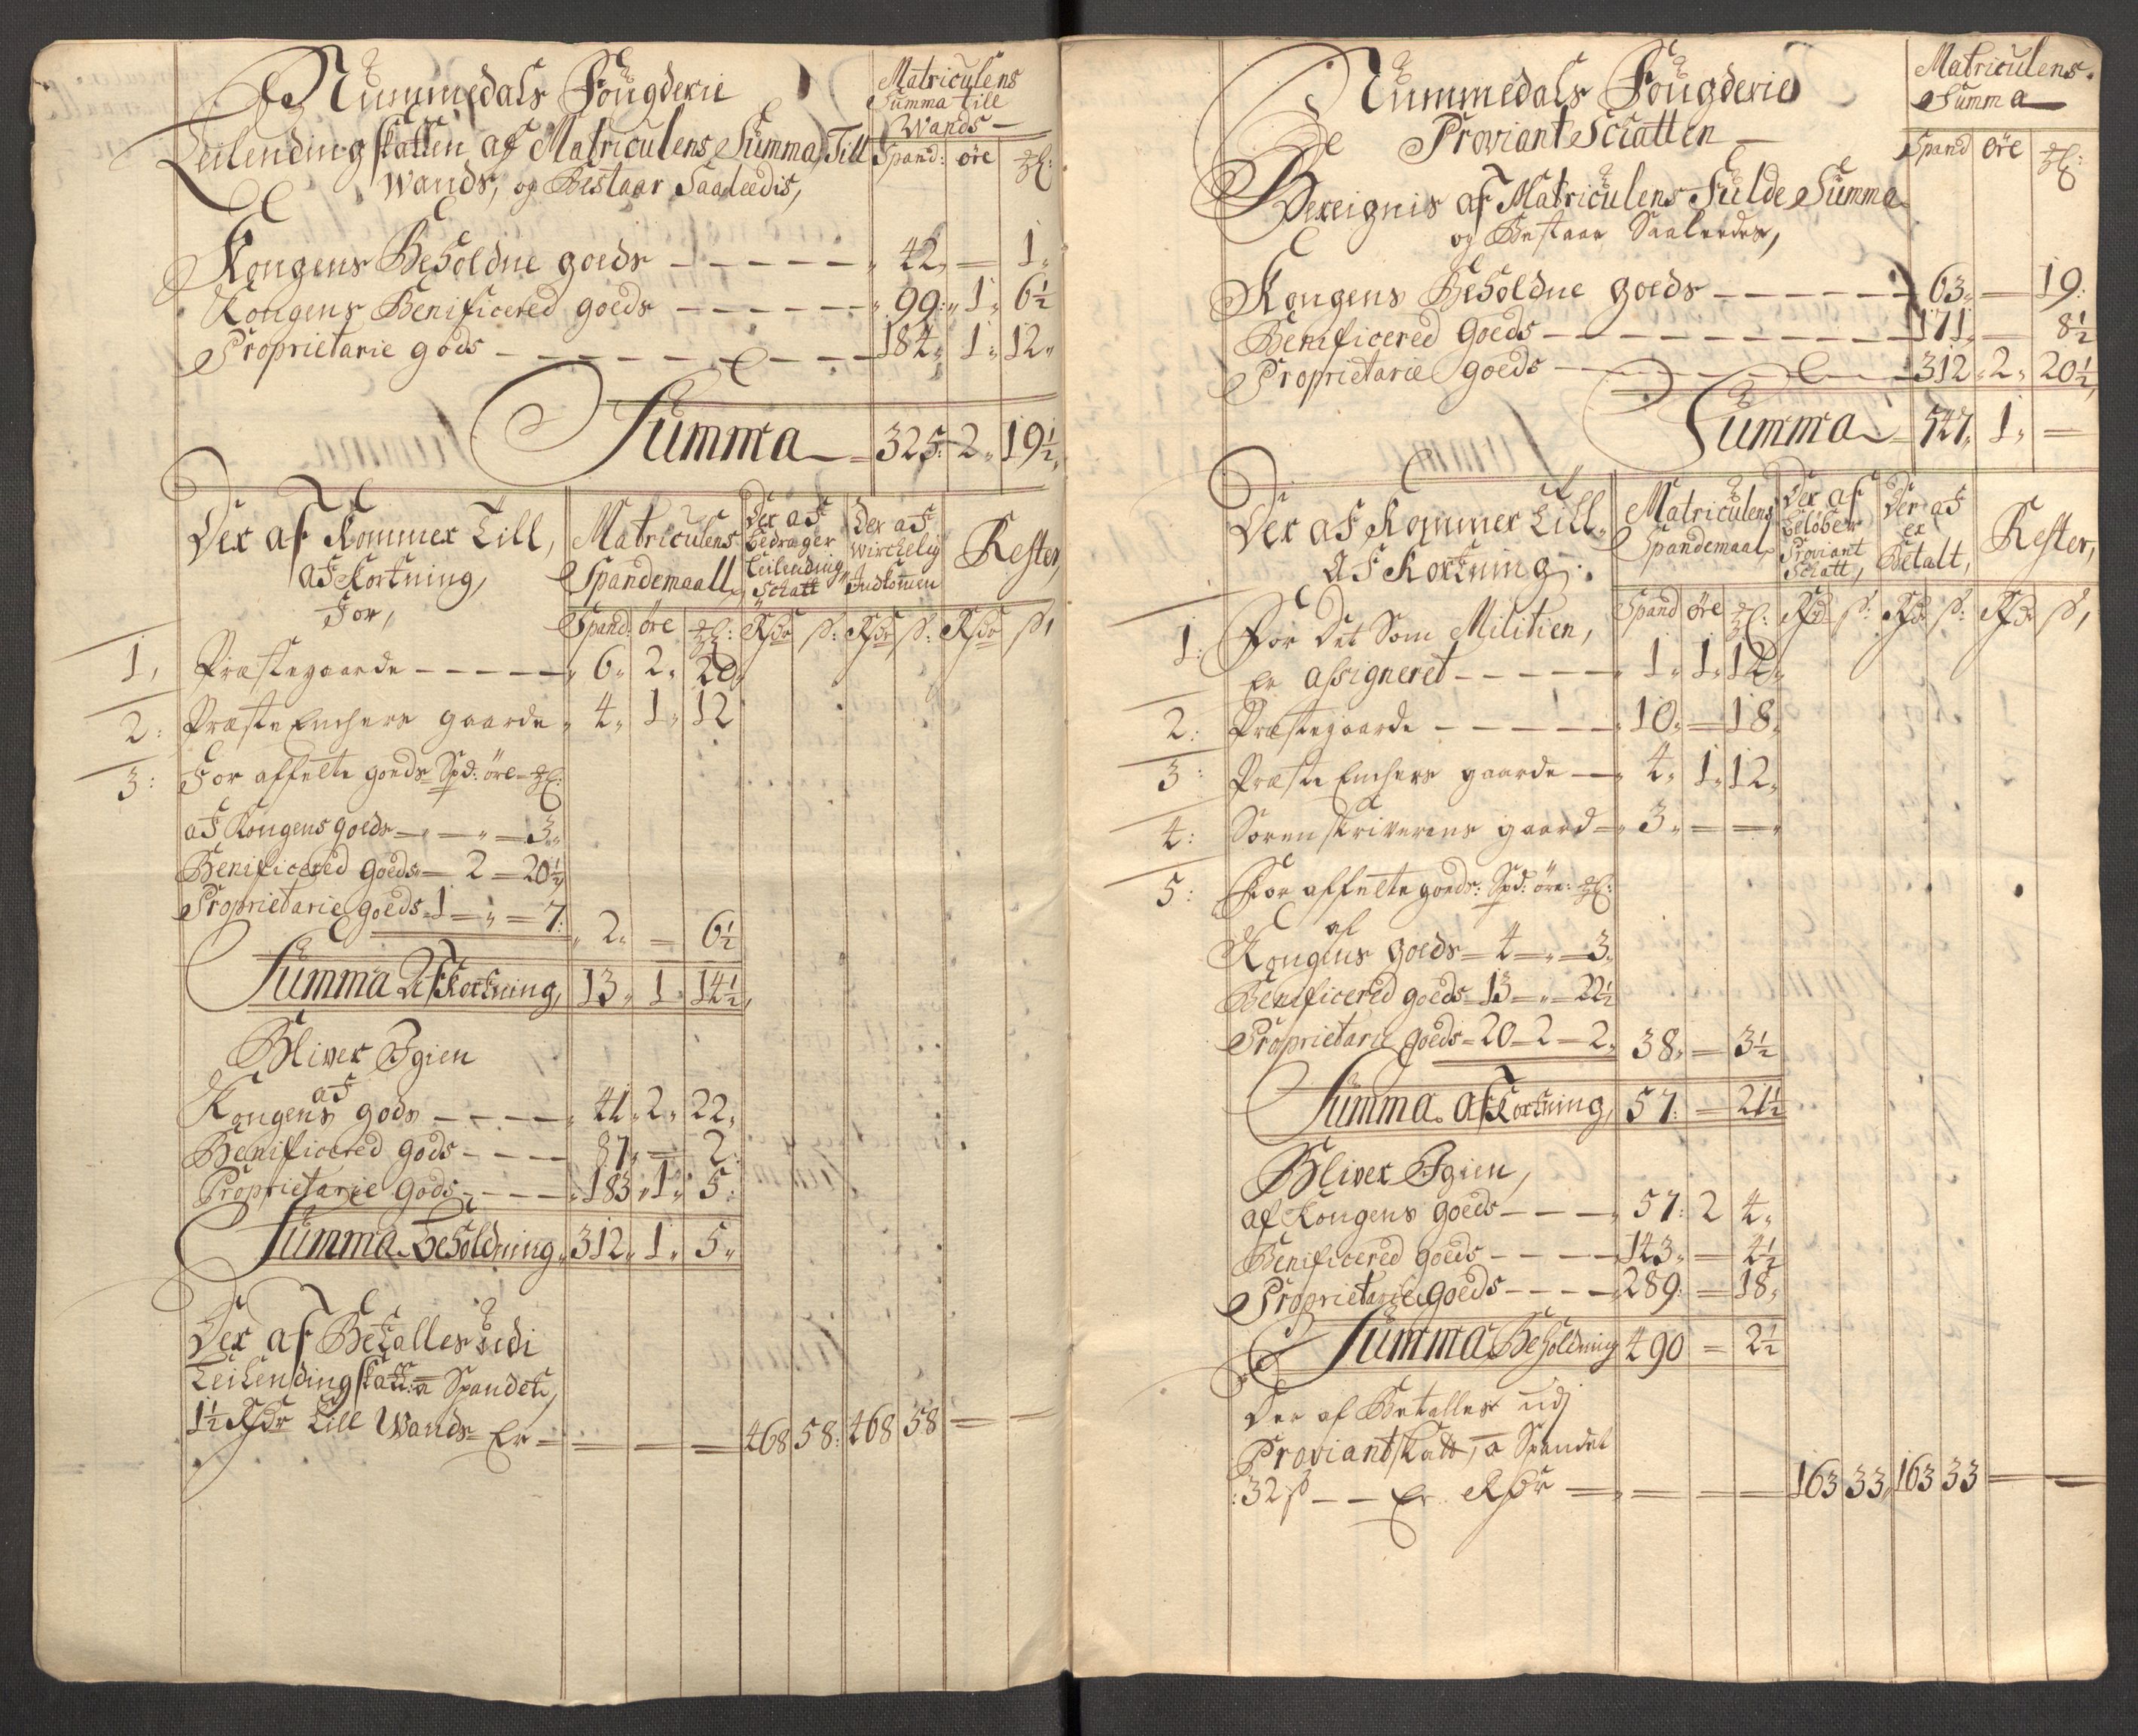 Nummedals Fougderie
Leilendingskatten af Matriculens Summa Till
Wands, og Bestaar Saaleedis,
Matriculens
Summa till
Wands
Spand: øre
Kongens Beholdne goeds 42 = 1
Kongens Benificered goeds 99: 1 6½
Proprietarie gods 184 1 12
Summa 325: 2 19½
Der af Kommer Till,
af Kortning,
For,
Matriculens
Spandemaall
Der af
bedrager
Leilending
Schatt
Der af
Wirchelig
Indkommen
Rester,
Spand: øre Rdr ß: Rdr ß: Rdr ß,
1, Præstegaarde 6 2 20
2: Præste Enchers gaarde 4 1 12
3: For affelte goeds Spd: øre
af Kongens goeds 3
Benificered goeds 2 20½
Proprietarie goeds 1 7: 2 = 6½
Summa Afkortning, 13 1 14½
Bliver Igien
af
Kongens gods 41 2 22
Benificered gods 87 = 2
Proprietarie gods 183 1 5:
Summa Beholdning 312 1 5
Der af Betalles udi
Leilendingskatt: a Spandet,
1½ Rdr Till Wands Er 468 58: 468 58
Nummedals Fougderie
Proviant Schatten
Bereignis af Matriculens Fulde Summa
og Bestaar Saaleedes,
Matriculens
Summa
Spand øre
Kongens Beholdne goeds 63 19:
Benificered Goeds 171 8½
Proprietarie goeds 312 2 20½
Summa 547 1 =
Der af Kommer Till
Af Kortning:
Matriculens
Spandemaal
Der af
beløber
Proviant
Schatt,
Der af
er
Betalt,
Rester,
Spand øre Rdr ß: Rdr ß: Rdr ß,
1: For Det Som Militien,
Er assigneret 1 1 12
2: Præstegaarde 10 = 18
3: Præste Enchers gaarde 4 1 12
4: Sorenskriverens gaard 3 = =
5: For affelte goeds: Spd: øre:
af
Kongens goeds 4 3
Benificered goeds 13 22½
Proprietarie goeds 20 2 2 38 = 3½
Summa Afkortning, 57: = 21½
Bliver Igien,
af Kongens goeds 57: 2 4
Benificered goeds 143 = 4½
Proprietarie goeds 289: = 18
Summa Beholdning 490 = 2½
Der af Betalles udj
Proviantskatt, a Spandet
32 ß Er Rdr 163 33 163 33